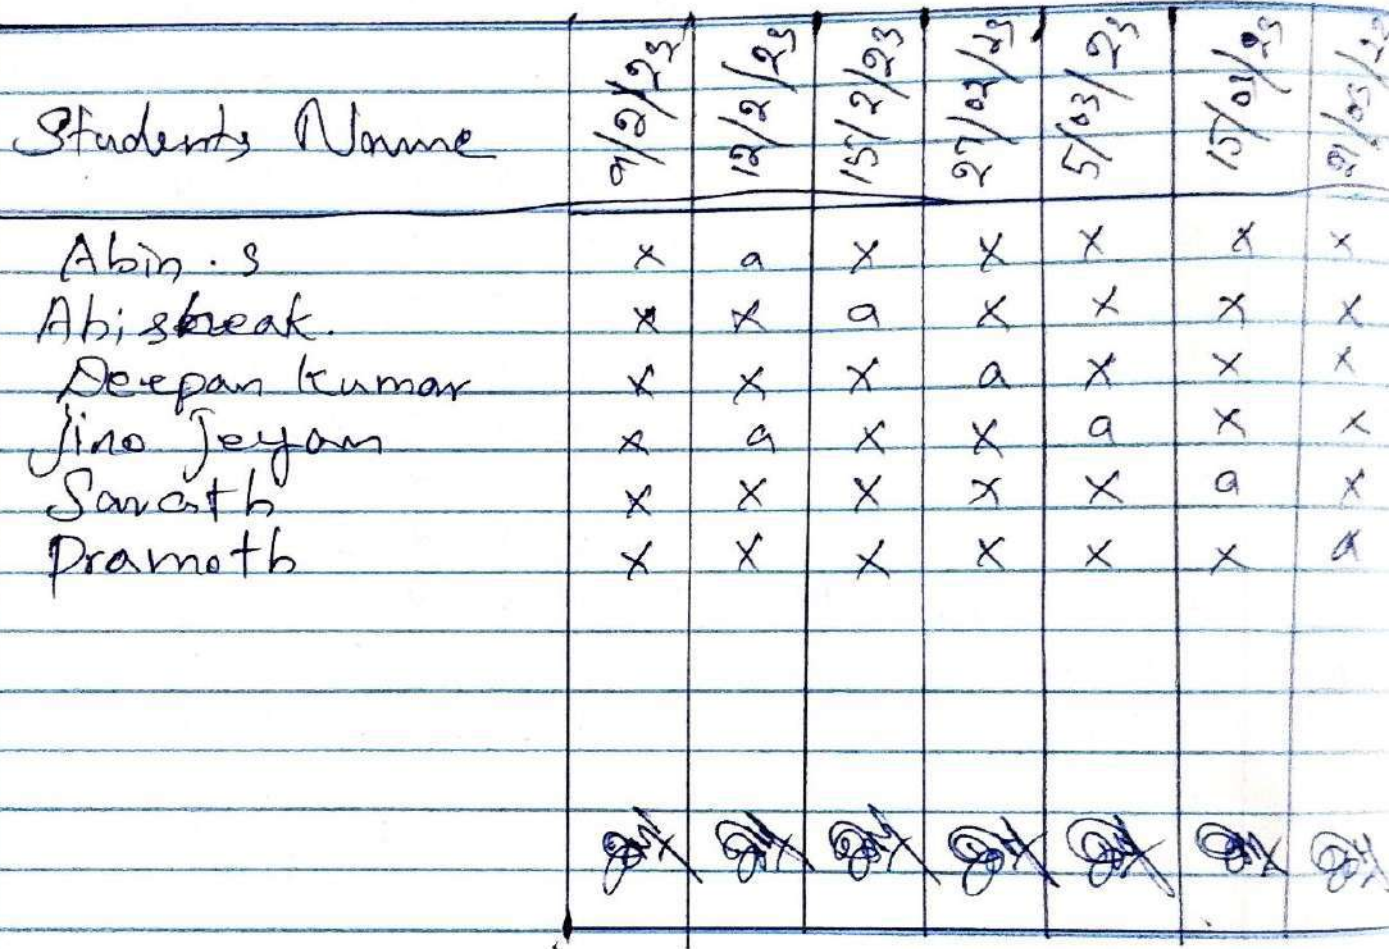 Students Name 9/2/23 12/2/23 15/2/23 27/02/23 5/03/23 15/03/23
Abin . s x a x x x x x
Abisbreak. x x a x x x x
Deepan kumar x x x a x x x
Jino Jeyam x a x x a x x
Sarath x x x x x a x
Pramoth x x x x x x a